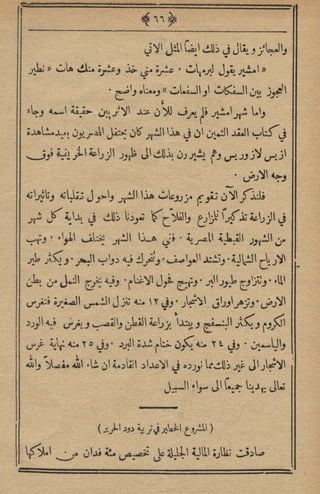 ﴿ ٦٦ ﴾
والعجائز ويقال في ذلك ايضاً المثل الاتي
« امشير يقول لبرمهات ٠ عشرة مني خذ وعشرة منك هات » نطير
العجوز بين السفكات او السفعات » ومعناه واضح ٠
واما شهر امشير فلم يعرف للآن عند الاثريين حقيقة اسمه وجاء
في كتاب العقد الثمين ان في هذا الشهر كان يحتفل المصريون بعيد مشاهدة
ازيس لازوريس وهم يشيرون بذلك الى ظهور الزراعة الخريفية فوق
وجه الارض ٠
فلنذكر الآن تقويم مزروعات هذا الشهر واحول تقلباته وتأثيراته
في الزراعة تذكيراً للزارع والفلاح كما تعودنا ذلك في بداية كل شهر
من الشهور القبطية المصرية ٠ ففي هذا الشهر يختلف الهواء ٠ وتهب
الارياح الشمالية ٠ وتشتد العواصف ٠ وتتحرك فيه دواب البحر ٠ ويكثر طير
الماء ٠ وتتزاوج طيور البر ٠ وتهيج فحول الاغنام ٠ وفيه يخرج النمل من بطن
الارض ٠ وتزهر اوراق الاشجار ٠ وفي ١٢ منه تنزل الشمس الصغيرة فتغرس
الكروم ويكثر البنفسج ويبتدأ بزراعة القطن والقصب ويغرس فيه الورد
والياسمين ٠ وفي ٢٤ منه يكون ختام شدة البرد ٠ وفي ٢٥ منه نهاية غرس
الاشجار الى غير ذلك مما نورده في الاعداد القادمة ان شاء الله مفصلاً والله
تعالى يهدينا جميعاً الى سواء السبيل
( المشروع الخطير في تربية دود الحرير )
صادقت نظارة المالية الجليلة على تخصيص مئة فدان من املاكها